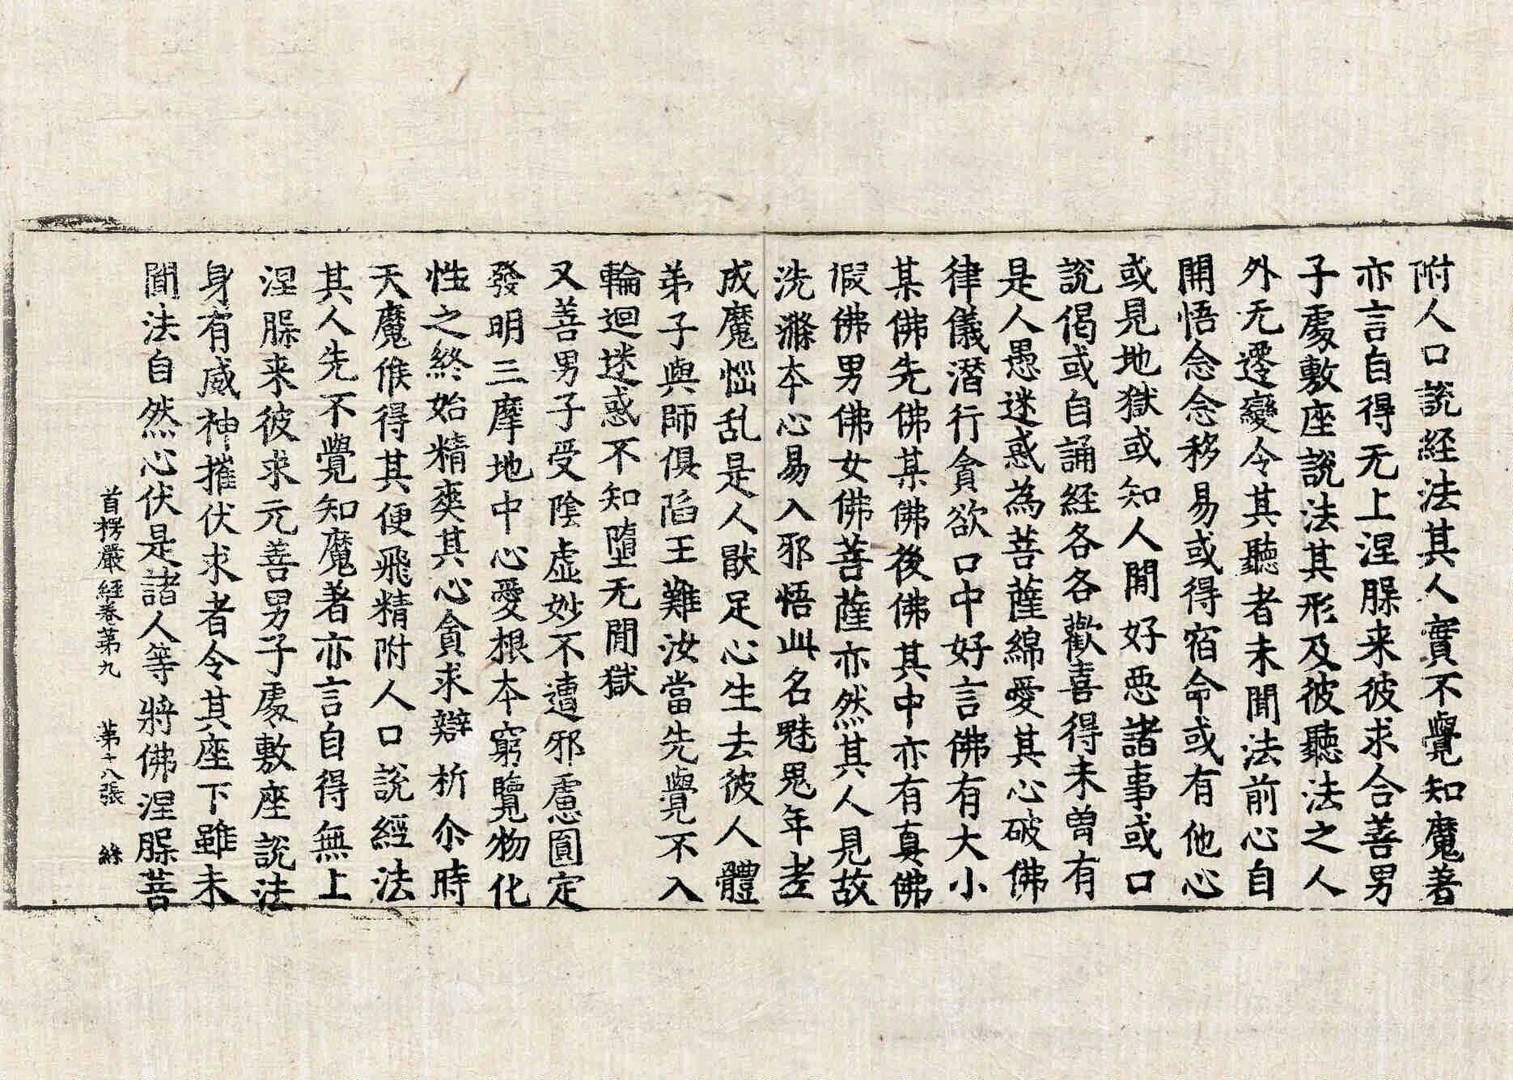 附人口說経法其人實不覺知魔著
亦言自得无上涅槃来彼求合善男
子處敷座說法其形及彼聽法之人
外无遷變令其聽者未聞法前心自
開悟念念移易或得宿命或有他心
或見地獄或知人間好惡諸事或口
說偈或自誦経各各歡喜得未曽有
是人愚迷惑為菩薩綿愛其心破佛
律儀潛行貪欲口中好言佛有大小
某佛先佛某佛後佛其中亦有真佛
假佛男佛女佛菩薩亦然其人見故
洗滌本心易入邪悟此名魅鬼年老
成魔惱乱是人猒足心生去彼人體
弟子與師俱陷王難汝當先覺不入
輪迴迷惑不知墮无間獄
又善男子受陰虛妙不遭邪慮圓定
發明三摩地中心愛根本窮覽物化
性之終始精爽其心貪求辯析尒時
天魔候得其便飛精附人口說經法
其人先不覺知魔著亦言自得無上
涅槃来彼求元善男子處敷座說法
身有威神摧伏求者令其座下雖未
聞法自然心伏是諸人等將佛涅槃菩
首楞嚴経卷第九 第十八張